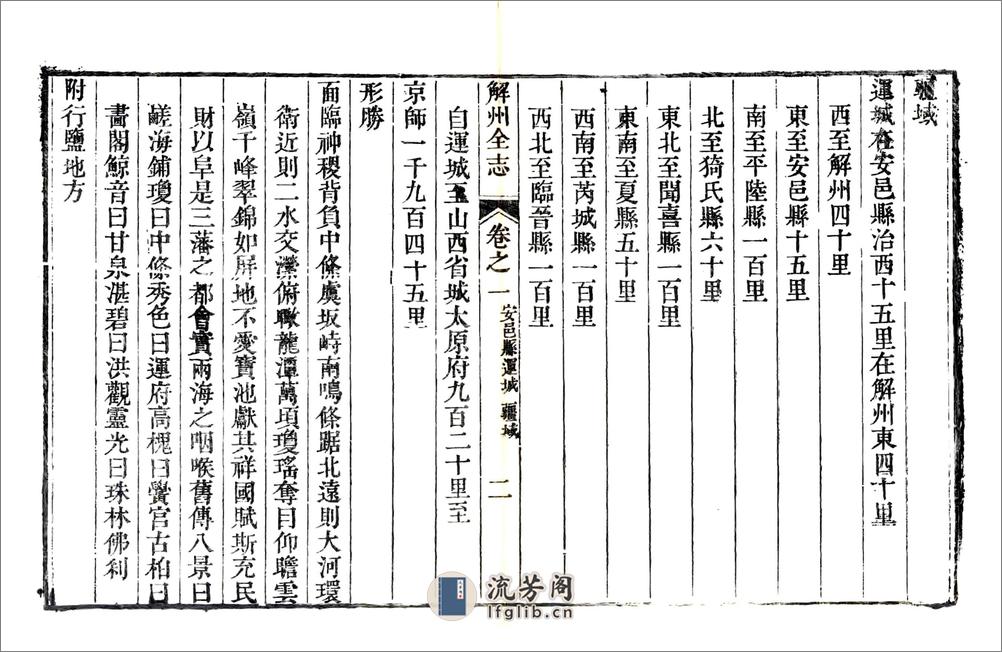 疆域
運城在安邑縣治西十五里在解州東四十里
西至解州四十里
東至安邑縣十五里
南至平陸縣一百里
北至猗氏縣六十里
東北至聞喜縣一百里
東南至夏縣五十里
西南至芮城縣一百里
西北至臨晉縣一百里
解州全志
卷之一
安邑縣運城
疆域
二
自運城至山西省城太原府九百二十里至
京師一千九百四十五里
形勝
面臨神稷背負中條虞坂峙南鳴條踞北遠則大河環
衛近則二水交瀠俯瞰龍潭萬頃瓊瑤奪目仰瞻雲
嶺千峰翠錦如屏地不愛寶池獻其祥國賦斯充民
財以阜是三藩之都會實兩海之咽喉舊傳八景曰
鹺海鋪瓊曰中條秀色曰運府高槐曰黌宮古柏曰
畫閣鯨音曰甘泉湛碧曰洪觀靈光曰珠林佛刹
附行鹽地方
流芳阁
lfglib.cn